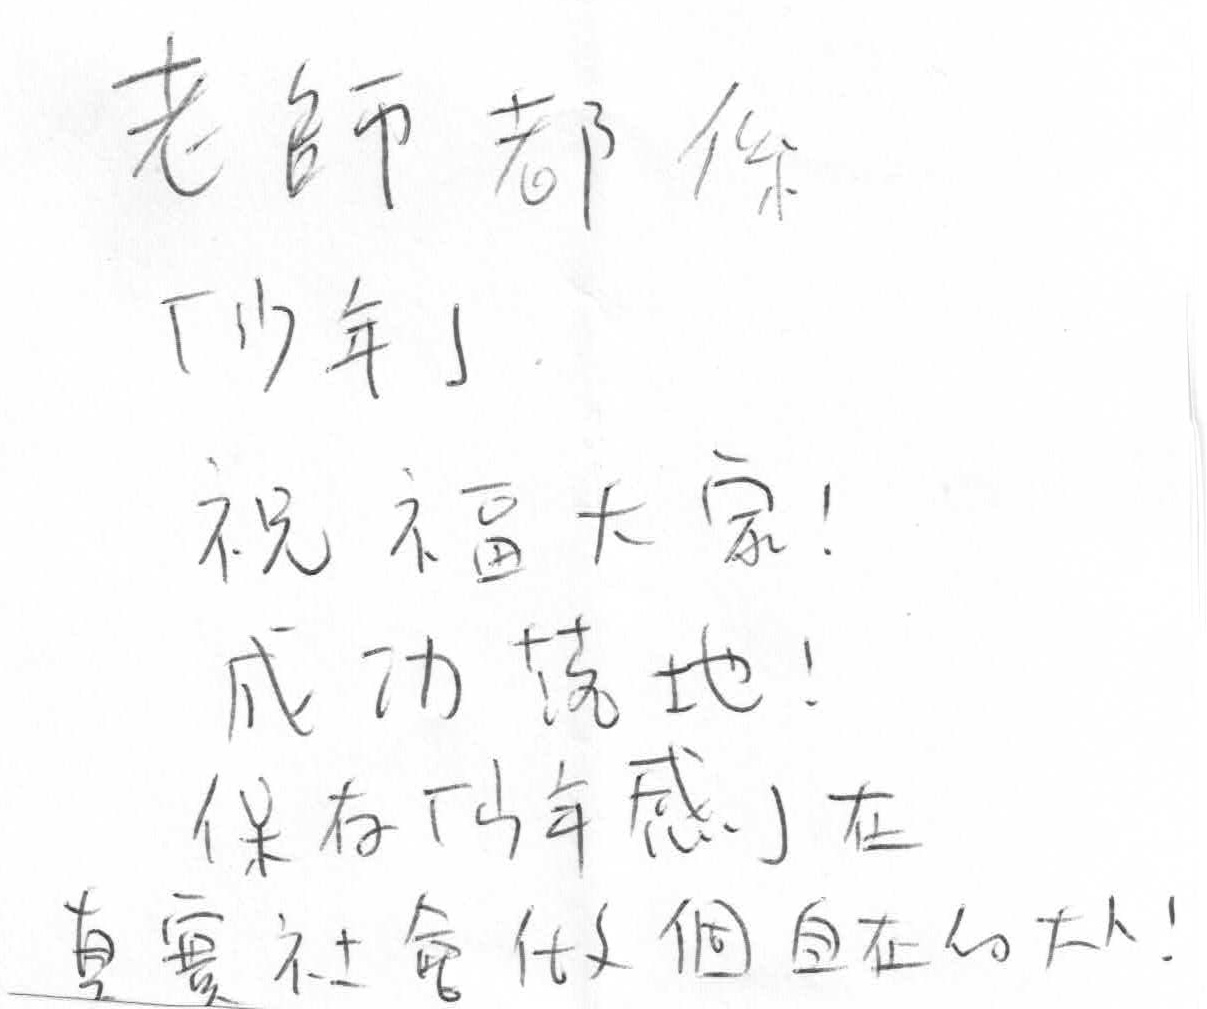 老師都係
「少年」
祝福大家！
成功落地！
保存「少年感」在
真實社會做個自在的大人！